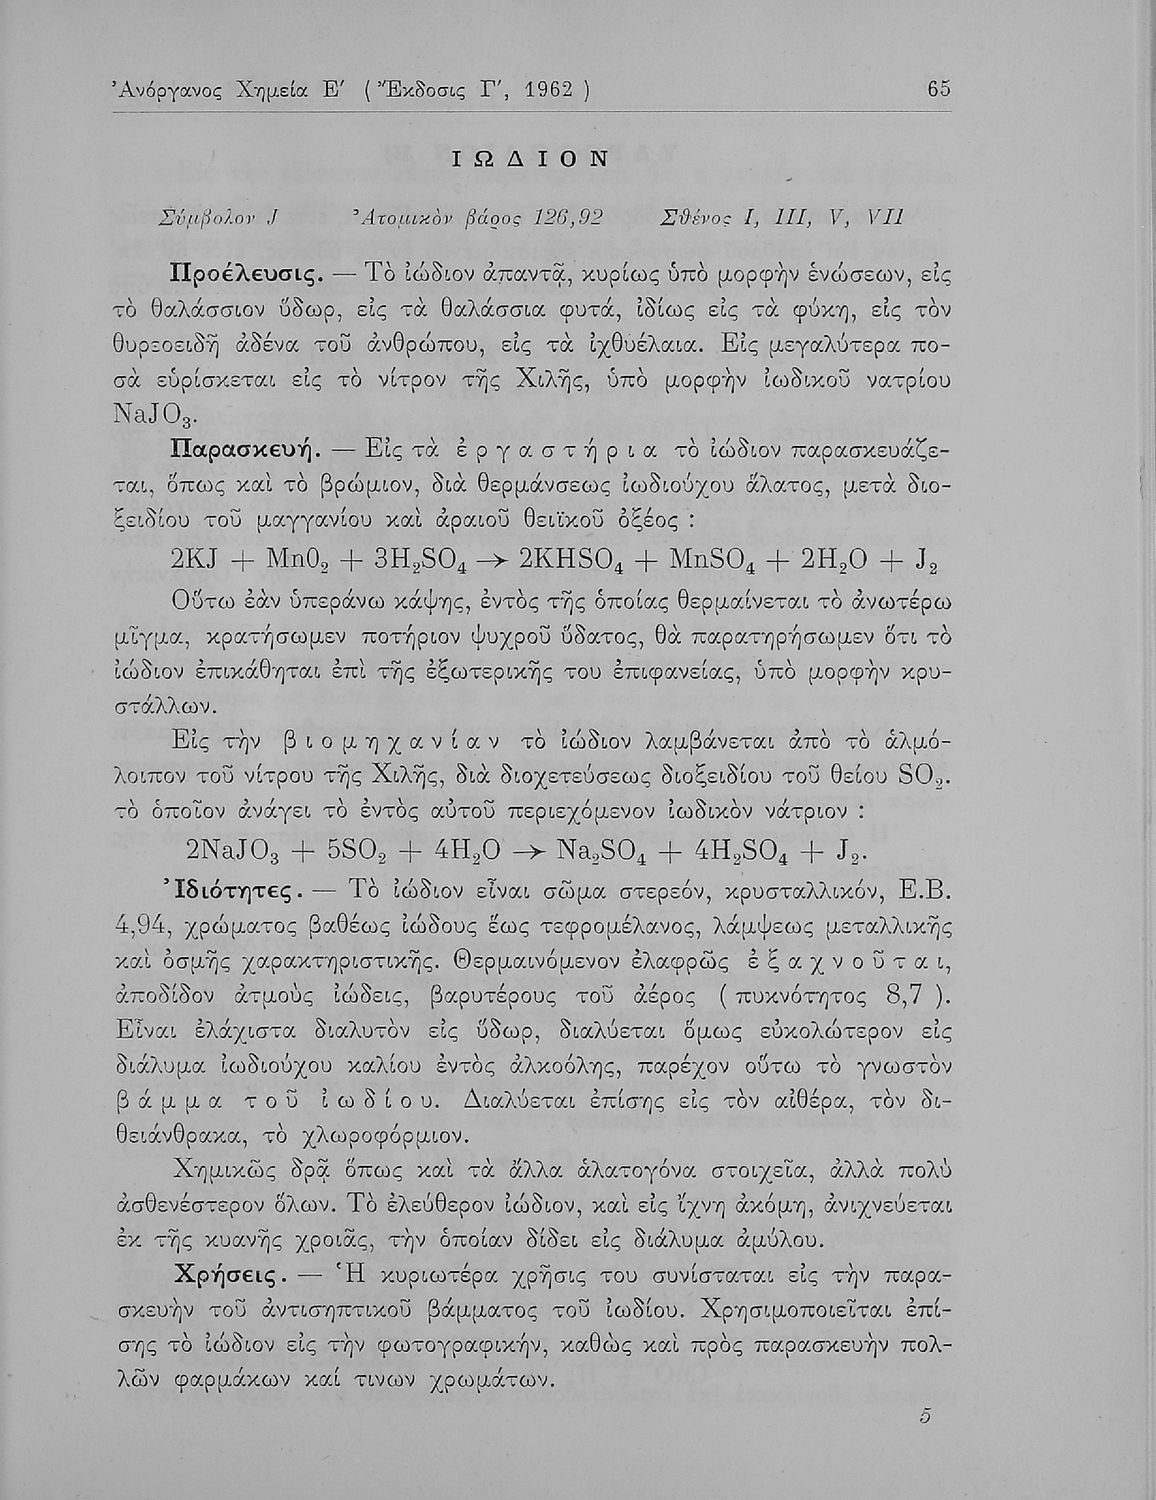 Ἀνόργανος Χημεία Ε′ ( Ἔκδοσις Γ′, 1962 ) 65
ΙΩΔΙΟΝ
Σύμβολον J Ἀτομικὸν βάρος 126,92 Σθένος I, III, V, VII
Προέλευσις. — Τὸ ἰώδιον ἀπαντᾷ, κυρίως ὑπὸ μορφὴν ἑνώσεων, εἰς
τὸ θαλάσσιον ὕδωρ, εἰς τὰ θαλάσσια φυτά, ἰδίως εἰς τὰ φύκη, εἰς τὸν
θυρεοειδῆ ἀδένα τοῦ ἀνθρώπου, εἰς τὰ ἰχθυέλαια. Εἰς μεγαλύτερα πο-
σὰ εὑρίσκεται εἰς τὸ νίτρον τῆς Χιλῆς, ὑπὸ μορφὴν ἰωδικοῦ νατρίου
NaJO₃.
Παρασκευή. — Εἰς τὰ ἐργαστήρια τὸ ἰώδιον παρασκευάζε-
ται, ὅπως καὶ τὸ βρώμιον, διὰ θερμάνσεως ἰωδιούχου ἅλατος, μετὰ διο-
ξειδίου τοῦ μαγγανίου καὶ ἀραιοῦ θειϊκοῦ ὀξέος :
2KJ + MnO₂ + 3H₂SO₄ → 2KHSO₄ + MnSO₄ + 2H₂O + J₂
Οὕτω ἐὰν ὑπεράνω κάψης, ἐντὸς τῆς ὁποίας θερμαίνεται τὸ ἀνωτέρω
μῖγμα, κρατήσωμεν ποτήριον ψυχροῦ ὕδατος, θὰ παρατηρήσωμεν ὅτι τὸ
ἰώδιον ἐπικάθηται ἐπὶ τῆς ἐξωτερικῆς του ἐπιφανείας, ὑπὸ μορφὴν κρυ-
στάλλων.
Εἰς τὴν βιομηχανίαν τὸ ἰώδιον λαμβάνεται ἀπὸ τὸ ἁλμό-
λοιπον τοῦ νίτρου τῆς Χιλῆς, διὰ διοχετεύσεως διοξειδίου τοῦ θείου SO₂.
τὸ ὁποῖον ἀνάγει τὸ ἐντὸς αὐτοῦ περιεχόμενον ἰωδικὸν νάτριον :
2NaJO₃ + 5SO₂ + 4H₂O → Na₂SO₄ + 4H₂SO₄ + J₂.
Ἰδιότητες. — Τὸ ἰώδιον εἶναι σῶμα στερεόν, κρυσταλλικόν, Ε.Β.
4,94, χρώματος βαθέως ἰώδους ἕως τεφρομέλανος, λάμψεως μεταλλικῆς
καὶ ὀσμῆς χαρακτηριστικῆς. Θερμαινόμενον ἐλαφρῶς ἐξαχνοῦται,
ἀποδίδον ἀτμοὺς ἰώδεις, βαρυτέρους τοῦ ἀέρος ( πυκνότητος 8,7 ).
Εἶναι ἐλάχιστα διαλυτὸν εἰς ὕδωρ, διαλύεται ὅμως εὐκολώτερον εἰς
διάλυμα ἰωδιούχου καλίου ἐντὸς ἀλκοόλης, παρέχον οὕτω τὸ γνωστὸν
βάμμα τοῦ ἰωδίου. Διαλύεται ἐπίσης εἰς τὸν αἰθέρα, τὸν δι-
θειάνθρακα, τὸ χλωροφόρμιον.
Χημικῶς δρᾷ ὅπως καὶ τὰ ἄλλα ἁλατογόνα στοιχεῖα, ἀλλὰ πολὺ
ἀσθενέστερον ὅλων. Τὸ ἐλεύθερον ἰώδιον, καὶ εἰς ἴχνη ἀκόμη, ἀνιχνεύεται
ἐκ τῆς κυανῆς χροιᾶς, τὴν ὁποίαν δίδει εἰς διάλυμα ἀμύλου.
Χρήσεις. — Ἡ κυριωτέρα χρῆσις του συνίσταται εἰς τὴν παρα-
σκευὴν τοῦ ἀντισηπτικοῦ βάμματος τοῦ ἰωδίου. Χρησιμοποιεῖται ἐπί-
σης τὸ ἰώδιον εἰς τὴν φωτογραφικήν, καθὼς καὶ πρὸς παρασκευὴν πολ-
λῶν φαρμάκων καί τινων χρωμάτων.
5